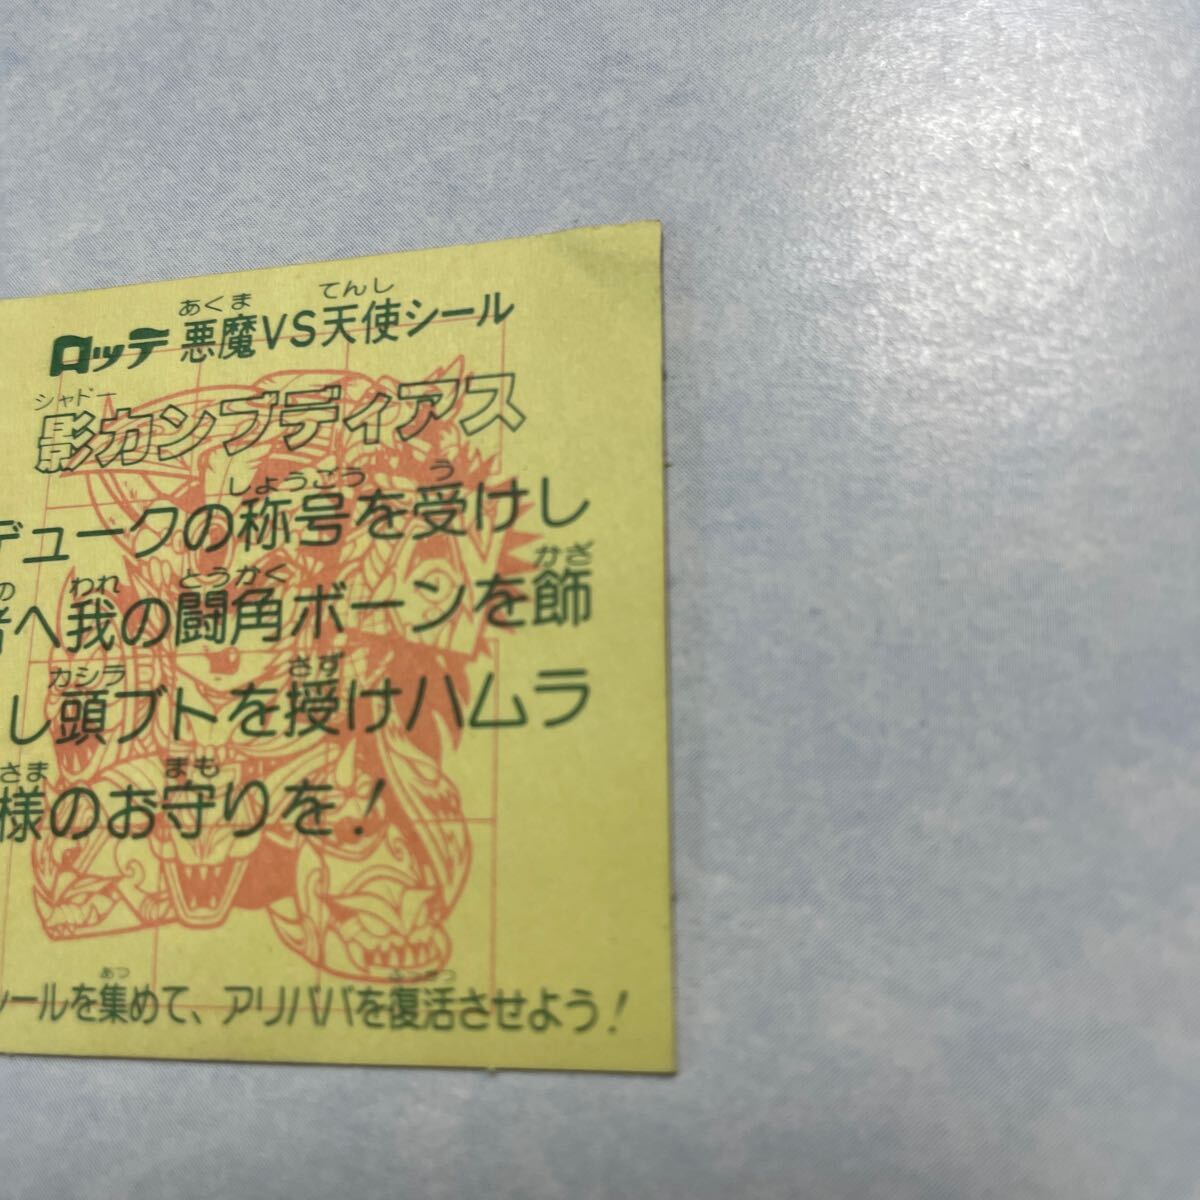 ロッテ 悪魔VS天使シール
あくま てんし
影カンブディアス
シャドー
デュークの称号を受けし
しょうごう う
者へ我の闘角ボーンを飾
の われ とうかく かざ
し頭ブトを授けハムラ
カシラ さず
様のお守りを!
さま まも
シールを集めて、アリババを復活させよう!
あつ ふっかつ